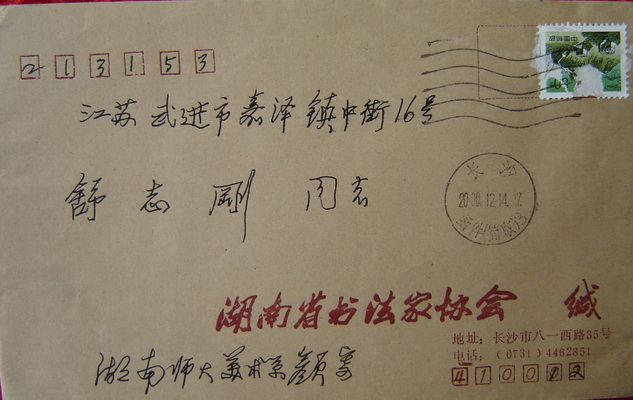 213153
江苏 武进市嘉泽镇中街16号
舒志刚 同志
长沙
2000.12.14.17
湖南省书法家协会 缄
地址：长沙市八一西路35号
电话：（0731）4462851
湖南师大美术系颜家
410002